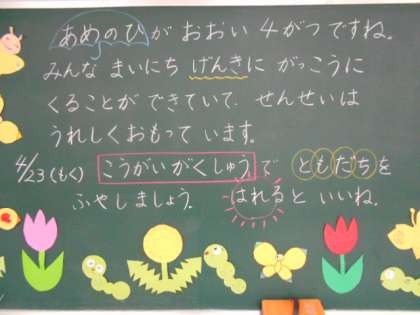 あめのひが おおい 4がつですね。
みんな まいにち げんきに がっこうに
くることが できていて、せんせいは
うれしく おもって います。
4/23(もく) こうがいがくしゅうで ともだちを
ふやしましょう。 はれると いいね。